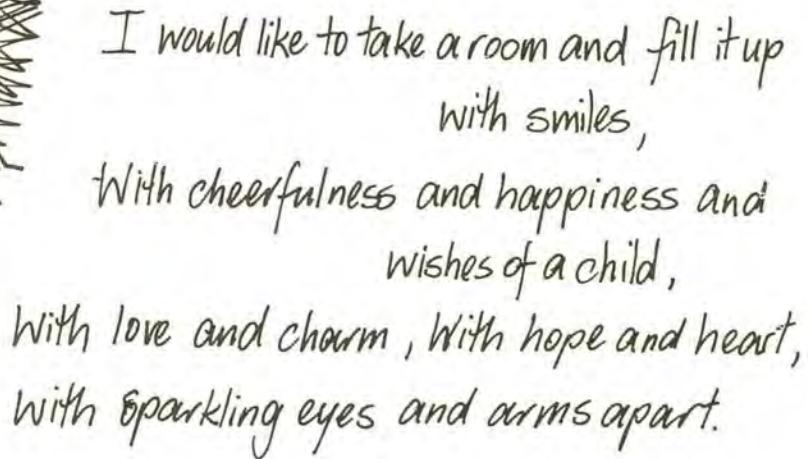 I would like to take a room and fill it up
with smiles,
With cheerfulness and happiness and
wishes of a child,
With love and charm, With hope and heart,
with sparkling eyes and arms apart.